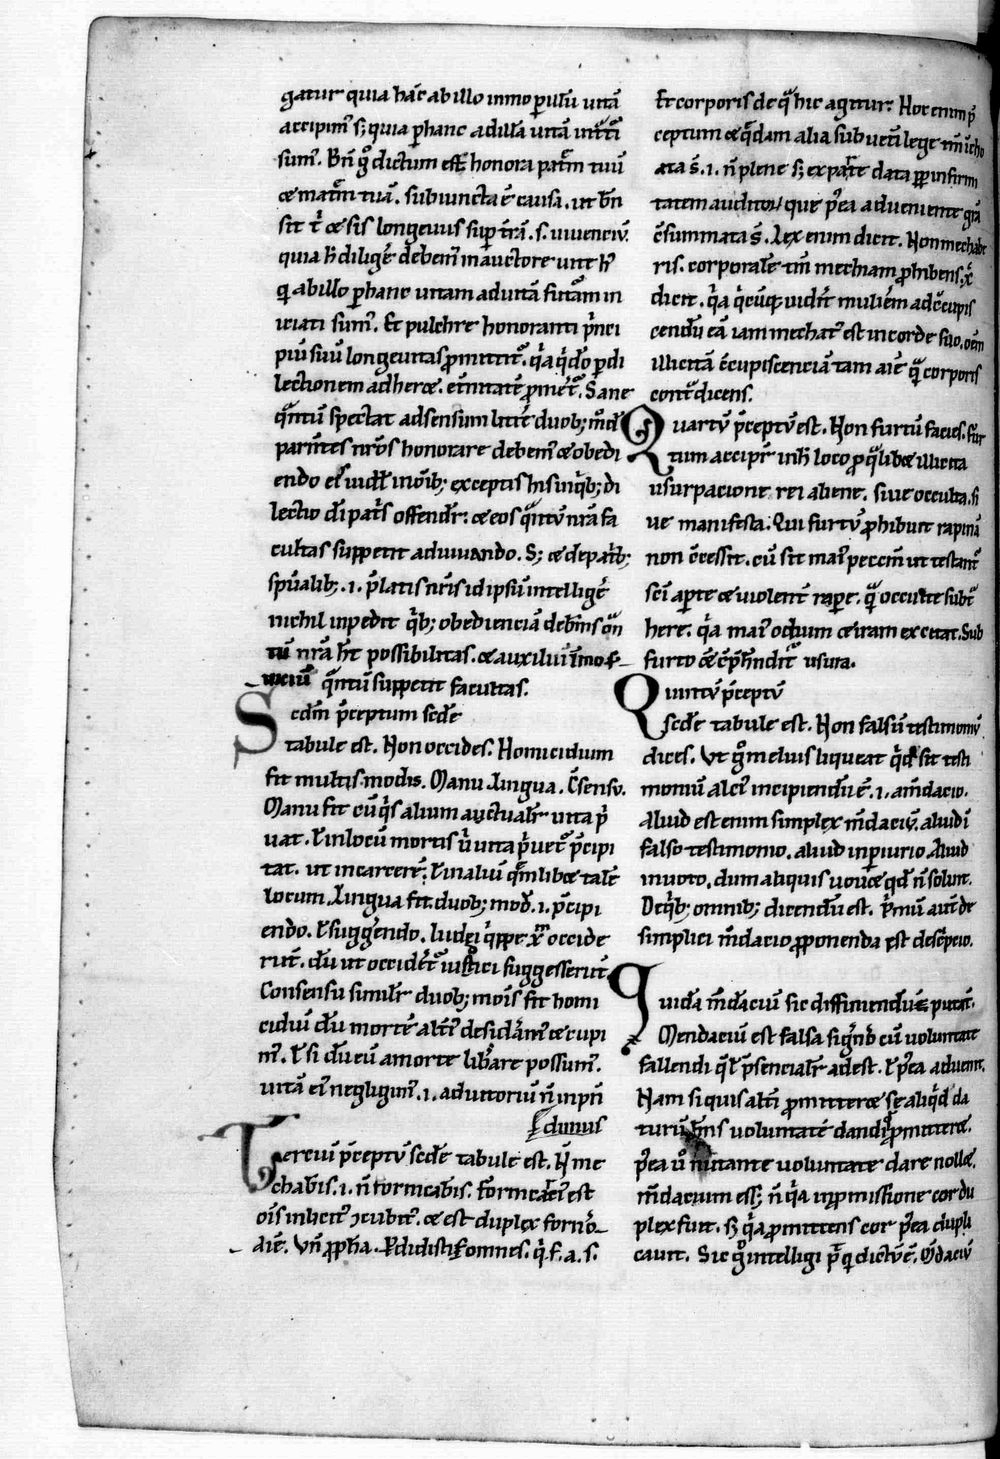 gatur quia hac̄ ab illo immo ꝑ illū uitā
accipim᷒ sꝫ quia ꝑ hanc ad illā uitā
sum᷒. Bn̄ gͦ dictum est honora patrē tuū
& matrē tuā. subiuncta ē causa. ut bn̄
sit t̄ & sis longeuus suꝑ t̄rā. s. uiuenciū.
quia si diligē debem᷒ in auctore uite
qi ab illo ꝑ hanc uitam ad uitā futurā in
uitati sum᷒. Et pulchre honoranti pͥnci
piū suū longeuitas ꝓmittit᷒. qͥa qͥ dͦo ꝑ di
lectionem adher&. et̄nitatē ꝓmer&᷒. Sane
qͣntū spectat ad sensum litt̄e duobꝫ m̄d
parentes nr̄os honorare debem᷒ & obedi
endo eis in oīb; exceptis his in qͥbꝫ di
lectio dī patͥs offendit᷒. & eos qͣntū nr̄a fa
cultas suppetit adiuuando. Sꝫ & de patͥbꝫ
spūalibꝫ .i. p̄latis nr̄is id ipsū intelligē
nichil inpedit qͥbꝫ obedienciā debem᷒ qͣn
tū nr̄a h̄t possibilitas. & auxilium
qͣntū suppetit facultas.
Secdm̄ p̄ceptum scd̄e
tabule est. Non occides. Homicidium
fit multis modis. Manu. Lingua. C̄sensu.
Manu fit cū qͥs alium actualit̄ uita pͥ
uat. ł in locū mortis ū uita pͥuet᷒ p̄cipi
tat. ut in carcerē. ł in aliū qm̄libet talē
locum. Lingua fit duobꝫ mod̄ .i. p̄cipi
endo. ł suggerendo. Iudei qͥppe xp̄m occide
rūt. dū ut occideret᷒ iustici suggesserūt.
Consensu similit̄ duobꝫ mois fit homi
cidiū dū mortē alt̄i᷒ desidām᷒ & cupi
m᷒. ł si dū eū a morte libare possum᷒.
uitā ei᷒ negligim᷒ .i. adiutoriū n̄ inpn̄
dimus
Terciū p̄ceptū scd̄e tabule est. N̄ me
chab̄is. i. n̄ fornicab̄is. fornicacio est
oīs inlicit᷒ ɔcubit᷒. & est duplex fornīo
aīe. Vn̄ ꝓph̄a. Ꝑdidisti omnes. q̄ f. a. s.
Et corporis de qͣ hic agitur. Hoc enim p̄
ceptum & qͣdam alia sub uet̄i lege tm̄ īcho
ata s̄t .i. n̄ plene sꝫ ex parte data ꝓpt̄ infirmi
tatem auditoꝝ que p̄ea adueniente grā
c̄summata s̄t. Lex enim dicit. Non mechabe
ris. corporalē tm̄ mechiam ꝓhibens. x̄p̄
dicit. qͥa qͥcūqꝫ uidit mulierē ad c̄cupis
cendū eā iam mechat᷒ est in corde suo. oēm
illicitā c̄cupiscenciā tam aīe qͣ corporis
contradicens.
Quartū p̄ceptū est. Non furtū facies. fur
tum accipit᷒ in h̄ loco ꝓ qͣlibet illicita
usurpacione rei aliene. siue occulta. si
ue manifesta. Qui furtū ꝓhibuit rapinā
non c̄cessit. cū sit mai᷒ peccm̄ ut testant᷒
sc̄i aꝑte & uiolent̄ raꝑe. qͣ occulte subt̄
here. qͥa mai᷒ odium & iram excitat. Sub
furto & c̄p̄hendit᷒ usura.
Quintū p̄ceptū
scd̄e tabule est. Non falsū testimoniū
dices. Ut gͦ melius liqueat qͥd sit testi
moniū alci᷒ incipiendū ē .i. a mēdacio.
Aliud est enim simplex m̄daciū. aliud ī
falso testimonio. aliud in ꝑiurio. Aliud
in uoto. dum aliquis uouet qd̄ n̄ soluit.
De qͥbꝫ omnibꝫ dicendū est. Pͥmū aut̄ de
simplici m̄dacio ꝓponenda est descp̄cio.
Quidā m̄daciū sic diffiniendū putāt.
Mendaciū est falsa signīo cū uoluntate
fallendi qͣ ł p̄sencialit̄ adest. ł p̄ea aduenit.
Nam si quis alt̄i ꝓmitter& se aliqͥd da
turū h̄ns uoluntatē dandi qͦ ꝓmitter&.
p̄ea ū mutante uoluntate dare noll&.
m̄dacium ess& n̄ qͥa in ꝓmissione cor du
plex fuit. sꝫ qͥa ꝓmittens cor p̄ea dupli
cauit. Sic gͦ intelligi p̄t qi dictū ē. Mēdaciū